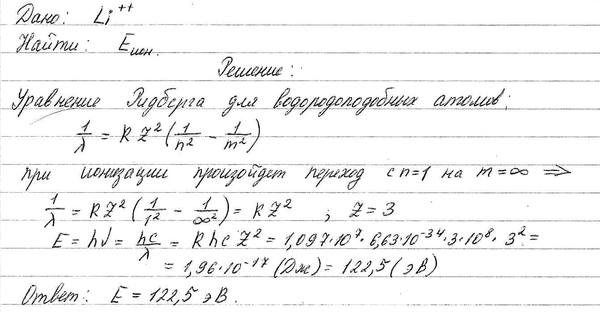 Дано: Li⁺⁺
Найти: Eион.
Решение:
Уравнение Ридберга для водородоподобных атомов:
1/λ = RZ²(1/n² − 1/m²)
при ионизации произойдет переход с n=1 на m=∞ ⇒
1/λ = RZ²(1/1² − 1/∞²) = RZ² ; Z=3
E = hν = hc/λ = RhcZ² = 1,097·10⁷·6,63·10⁻³⁴·3·10⁸·3² =
= 1,96·10⁻¹⁷ (Дж) = 122,5 (эВ)
Ответ: E = 122,5 эВ.